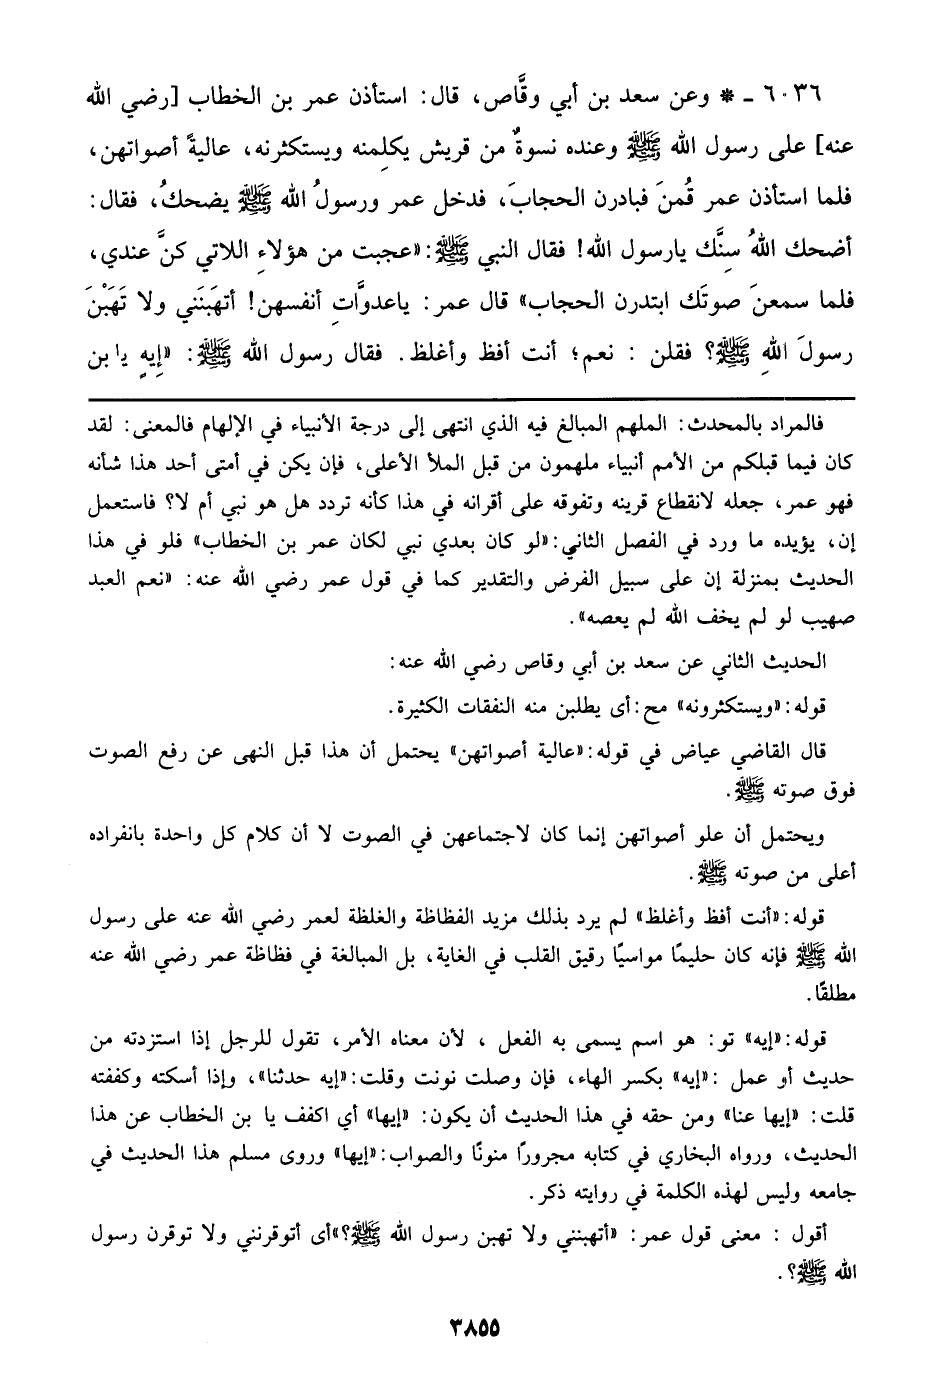 ٦٠٣٦ ـ * وعن سعد بن أبي وقَّاص، قال: استأذن عمر بن الخطاب [رضي الله
عنه] على رسول الله ﷺ وعنده نسوةٌ من قريش يكلمنه ويستكثرنه، عاليةً أصواتهن،
فلما استأذن عمر قُمنَ فبادرن الحجابَ، فدخل عمر ورسولُ الله ﷺ يضحكُ، فقال:
أضحك اللهُ سِنَّك يارسول الله! فقال النبي ﷺ: «عجبت من هؤلاءِ اللاتي كنَّ عندي،
فلما سمعنَ صوتَك ابتدرن الحجاب» قال عمر: ياعدوَّاتِ أنفسهن! أتهَبنَني ولا تَهَبْنَ
رسولَ اللهِ ﷺ؟ فقلن : نعم؛ أنت أفظ وأغلظ. فقال رسول الله ﷺ: «إيهِ يا بن
فالمراد بالمحدث: الملهم المبالغ فيه الذي انتهى إلى درجة الأنبياء في الإلهام فالمعنى: لقد
كان فيما قبلكم من الأمم أنبياء ملهمون من قبل الملأ الأعلى، فإن يكن في أمتى أحد هذا شأنه
فهو عمر، جعله لانقطاع قرينه وتفوقه على أقرانه في هذا كأنه تردد هل هو نبي أم لا؟ فاستعمل
إن، يؤيده ما ورد في الفصل الثاني: «لو كان بعدي نبي لكان عمر بن الخطاب» فلو في هذا
الحديث بمنزلة إن على سبيل الفرض والتقدير كما في قول عمر رضي الله عنه: «نعم العبد
صهيب لو لم يخف الله لم يعصه».
الحديث الثاني عن سعد بن أبي وقاص رضي الله عنه:
قوله: «ويستكثرونه» مح: أى يطلبن منه النفقات الكثيرة.
قال القاضي عياض في قوله: «عالية أصواتهن» يحتمل أن هذا قبل النهى عن رفع الصوت
فوق صوته ﷺ.
ويحتمل أن علو أصواتهن إنما كان لاجتماعهن في الصوت لا أن كلام كل واحدة بانفراده
أعلى من صوته ﷺ.
قوله: «أنت أفظ وأغلظ» لم يرد بذلك مزيد الفظاظة والغلظة لعمر رضي الله عنه على رسول
الله ﷺ فإنه كان حليمًا مواسيًا رقيق القلب في الغاية، بل المبالغة في فظاظة عمر رضي الله عنه
مطلقًا.
قوله: «إيه» تو: هو اسم يسمى به الفعل ، لأن معناه الأمر، تقول للرجل إذا استزدته من
حديث أو عمل : «إيه» بكسر الهاء، فإن وصلت نونت وقلت: «إيه حدثنا»، وإذا أسكته وكففته
قلت: «إيها عنا» ومن حقه في هذا الحديث أن يكون: «إيها» أي اكفف يا بن الخطاب عن هذا
الحديث، ورواه البخاري في كتابه مجرورًا منونًا والصواب: «إيها» وروى مسلم هذا الحديث في
جامعه وليس لهذه الكلمة في روايته ذكر.
أقول : معنى قول عمر: «أتهبنني ولا تهبن رسول الله ﷺ؟» أى أتوقرنني ولا توقرن رسول
الله ﷺ؟.
٣٨٥٥